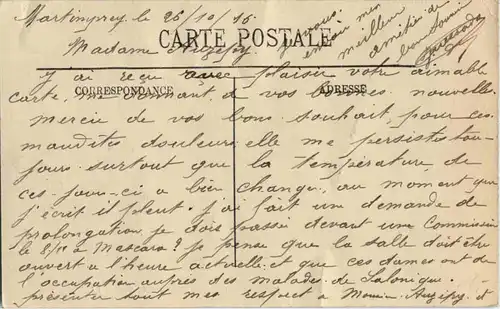 Martimprey le 26/10/16
Madame Auzépy
CARTE POSTALE
CORRESPONDANCE
ADRESSE
J'ai reçu avec plaisir votre aimable
carte, me donnant de vos bonnes nouvelles
merci de vos bons souhait, pour ces
maudites douleurs, elle me persistes tou-
jours surtout que la température de
ces-jours-ci a bien changé, au moment que
j'écrit il pleut. J'ai fait une demande de
prolongation, je dois passé devant une Commission
le à Mascara? je pense que la salle doit être
ouvert a l'heure actuelle et que ces dames ont de
l'occupation auprès des malades de Salonique.
présenter sont mes respect à Auzépy et
je vous
envoie mon
meilleur
amitié de
bon souvenir